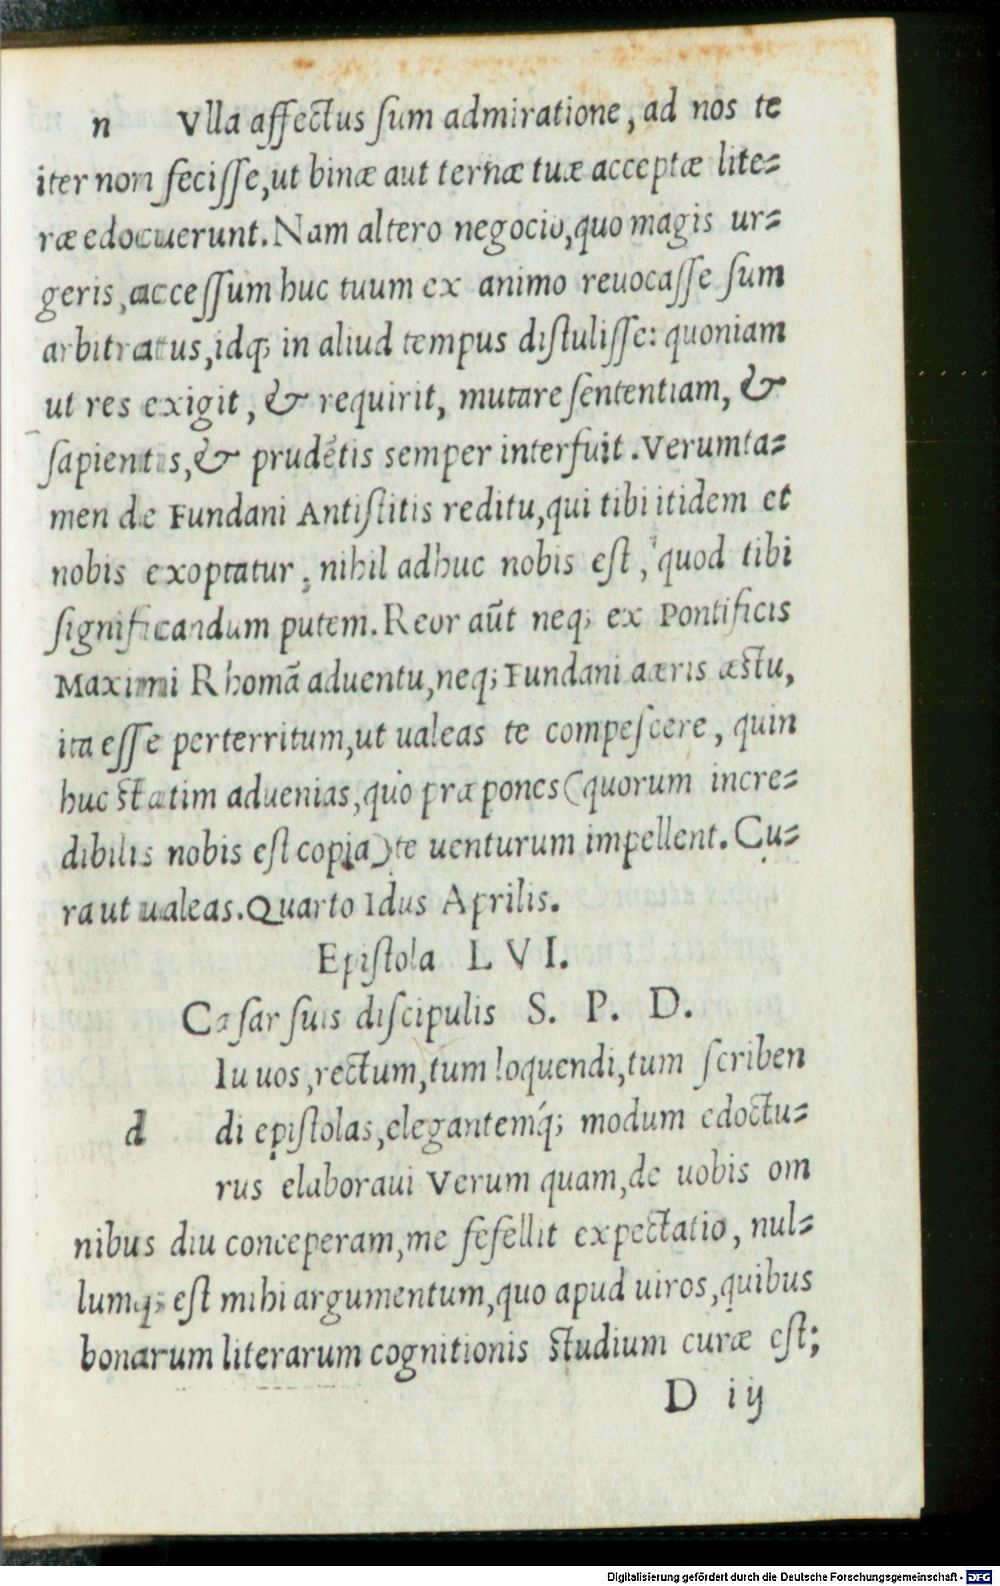 n Vlla affectus ſum admiratione, ad nos te
iter non feciſſe, ut binæ aut ternæ tuæ acceptæ lite⸗
ræ edocuerunt. Nam altero negocio, quo magis ur⸗
geris, acceſſum huc tuum ex animo reuocaſſe ſum
arbitratus, idq; in aliud tempus diſtuliſſe: quoniam
ut res exigit, & requirit, mutare ſententiam, &
ſapientis, & prudẽtis semper interfuit. Verumta⸗
men de Fundani Antiſtitis reditu, qui tibi itidem et
nobis exoptatur, nihil adhuc nobis eſt, quod tibi
ſignificandum putem. Reor aũt neq; ex Pontificis
Maximi Rhomã aduentu, neq; Fundani aæris æſtu,
ita eſſe perterritum, ut ualeas te compeſcere, quin
huc ſtatim aduenias, quo præpones (quorum incre⸗
dibilis nobis eſt copia) te uenturum impellent. Cu⸗
ra ut ualeas. Quarto Idus Aprilis.
Epiſtola L V I.
Cæſar ſuis diſcipulis S. P. D.
Iu uos, rectum, tum loquendi, tum ſcriben
d di epiſtolas, elegantemq́; modum edoctu⸗
rus elaboraui Verum quam, de uobis om
nibus diu conceperam, me feſellit expectatio, nul⸗
lumq; eſt mihi argumentum, quo apud uiros, quibus
bonarum literarum cognitionis ſtudium curæ eſt;
D iij
Digitalisierung gefördert durch die Deutsche Forschungsgemeinschaft - DFG